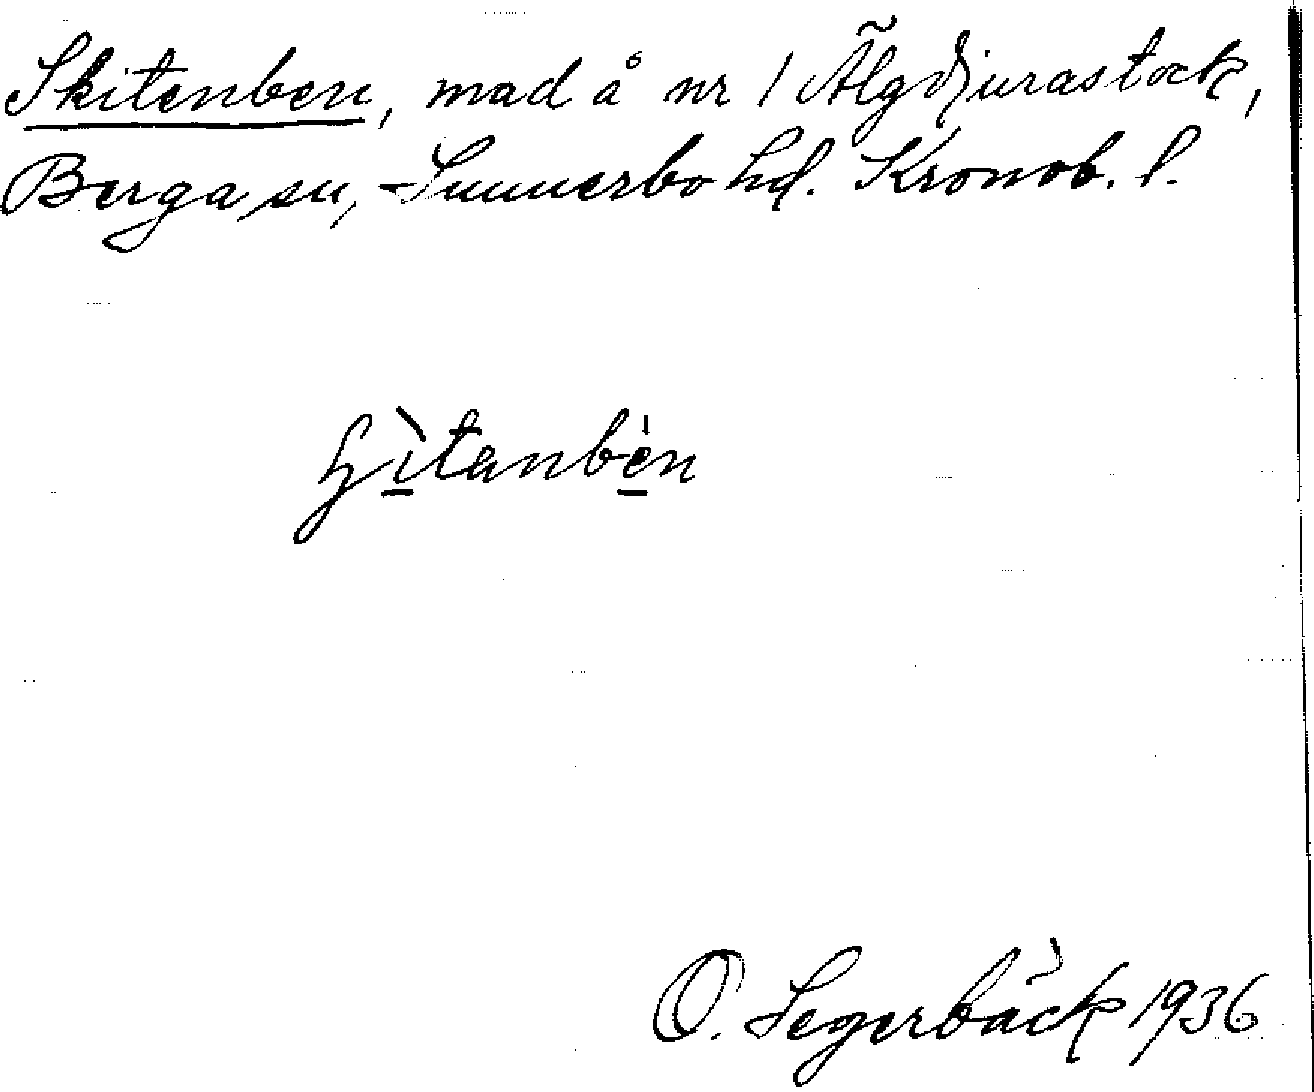 Skitenben, mad å nr 1 Älgdjurastock,
Berga sn, Sunnerbo hd. Kronob. l.
O. Segerbäck 1936